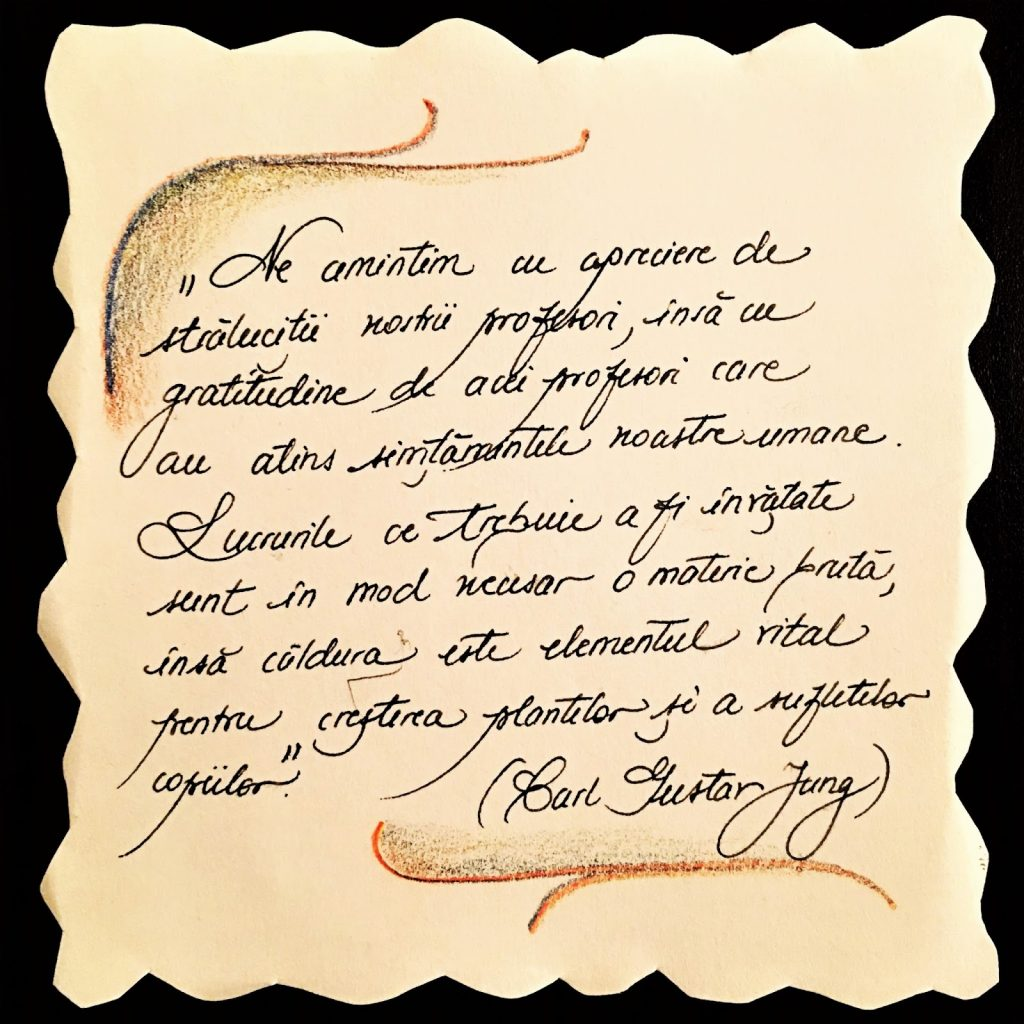 „Ne amintim cu apreciere de
străluciții noștrii profesori, însă cu
gratitudine de acei profesori care
au atins simțămintele noastre umane.
Lucrurile ce trebuie a fi învățate
sunt în mod necesar o materie brută,
însă căldura este elementul vital
pentru creșterea plantelor și a sufletelor
copiilor."
(Carl Gustav Jung)